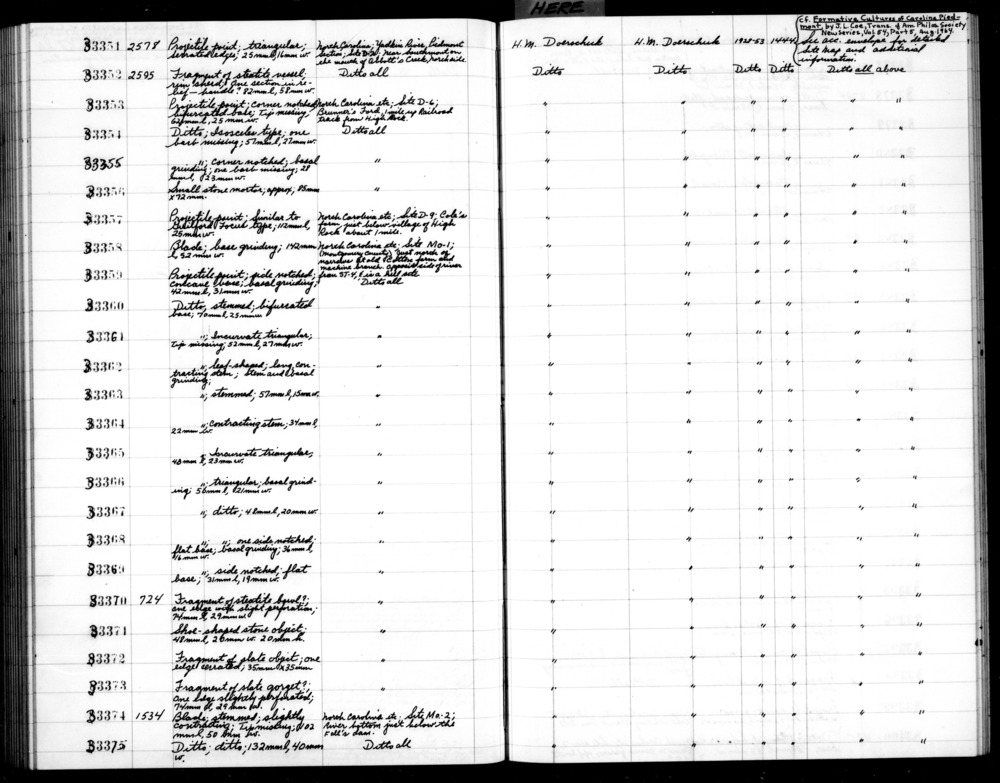 HERE
cf. Formative Cultures of Carolina Pied-
mont, by J.L. Coe, Trans. of Am. Philos. Society
New Series, Vol. 54, Part 5, Aug. 1964.
33351 2578 Projectile point, triangular; North Carolina; Yadkin River, Piedmont H.M. Doerschuk H.M. Doerschuk 1928-53 14444 See acc. envelope for detailed
serrated edge; 25mm l, 16mm w. the mouth of Abbott's Creek, north side site map and additional
information.
33352 2595 Fragment of steatite vessel; Ditto all Ditto Ditto Ditto Ditto Ditto all above
rim sherd; one section in re-
lief - handle? 82mm l, 58mm w.
33353 Projectile point; corner notched North Carolina etc; Site D-6; " " " " " "
bifurcated base; tip missing; Brunner's Ford, 1 mile up Railroad
62mm l, 25 mm w. track from High Rock.
33354 Ditto; Isosceles type; one Ditto all " " " " " "
barb missing; 57mm l, 27mm w.
33355 "; corner notched; basal " " " " " " "
grinding; one barb missing; 28
mm l, 23mm w.
33356 Small stone mortar; approx. 85mm " " " " " " "
x 72 mm.
33357 Projectile point; similar to North Carolina etc; Site D-9; Cole's " " " " " "
Guilford Focus type; 112mm l, farm just below village of High
25mm w. Rock about 1 mile.
33358 Blade; base grinding; 142mm North Carolina etc; Site Mo-1; " " " " " "
l, 52 mm w. (Montgomery County) Just north of
narrows at old Cotton farm and
machine branch opposite side of river
33359 Projectile point; side notched; from ST-4, & is a hill site " " " " " "
concave base; basal grinding; Ditto all
42mm l, 31mm w.
33360 Ditto, stemmed; bifurcated " " " " " " "
base; 70mm l, 25mm w
33361 "; Incurvate triangular; " " " " " " "
tip missing; 52mm l, 27mm w.
33362 "; leaf-shaped; long con- " " " " " " "
tracting stem; stem and basal
grinding;
33363 "; stemmed; 57mm l, 15mm w. " " " " " " "
33364 "; contracting stem; 34mm l, " " " " " " "
22mm w.
33365 "; Incurvate triangular; " " " " " " "
48mm l, 23mm w.
33366 "; triangular; basal grind- " " " " " " "
ing; 50mm l, 21mm w.
33367 "; ditto; 48mm l, 20mm w. " " " " " " "
33368 "; "; one side notched; " " " " " " "
flat base; basal grinding; 36mm l,
16mm w.
33369 "; side notched; flat " " " " " " "
base; 31mm l, 19mm w.
33370 724 Fragment of steatite bowl?; " " " " " " "
one edge with slight perforation;
74mm l, 29mm w.
33371 Shoe-shaped stone object; " " " " " " "
48mm l, 26mm w. 20mm h.
33372 Fragment of slate object; one " " " " " " "
edge serrated; 35mm x 35mm
33373 Fragment of slate gorget?; " " " " " " "
one edge slightly perforated;
74mm l, 29mm w.
33374 1534 Blade; stemmed; slightly North Carolina etc; Site Mo-2; " " " " " "
contracting; Tip missing; 102 River bottom just below the
mm l, 50 mm w. Falls dam.
33375 Ditto; ditto; 132mm l, 40mm Ditto all " " " " " "
w.